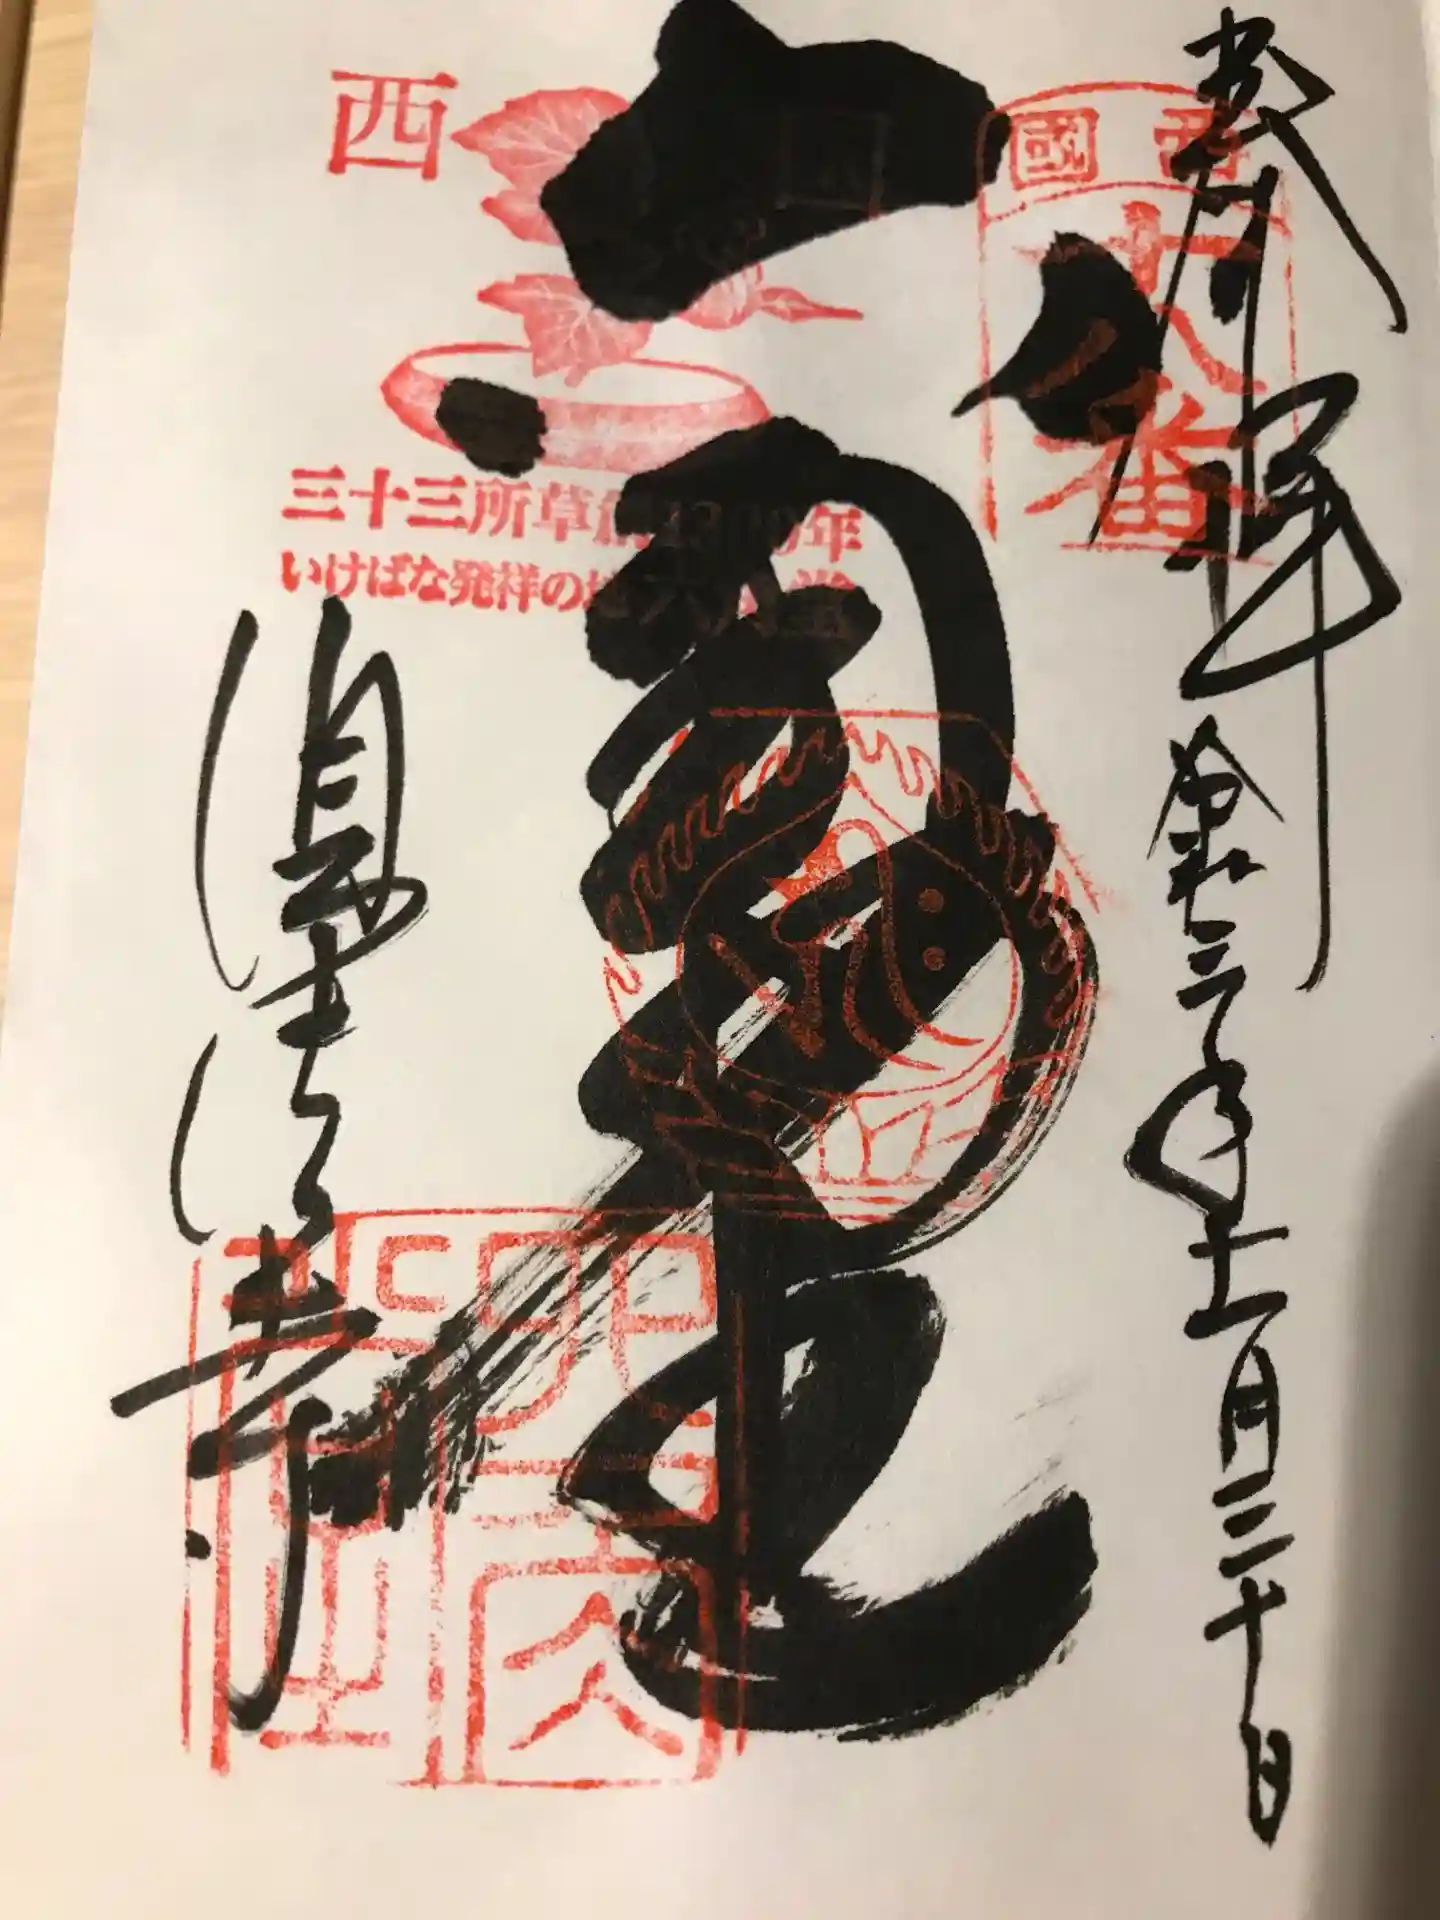 奉拝
西國
十八番
令和三年十一月三十日
西国
三十三所草創1300年
いけばな発祥の地 六角堂
六角堂
頂法寺